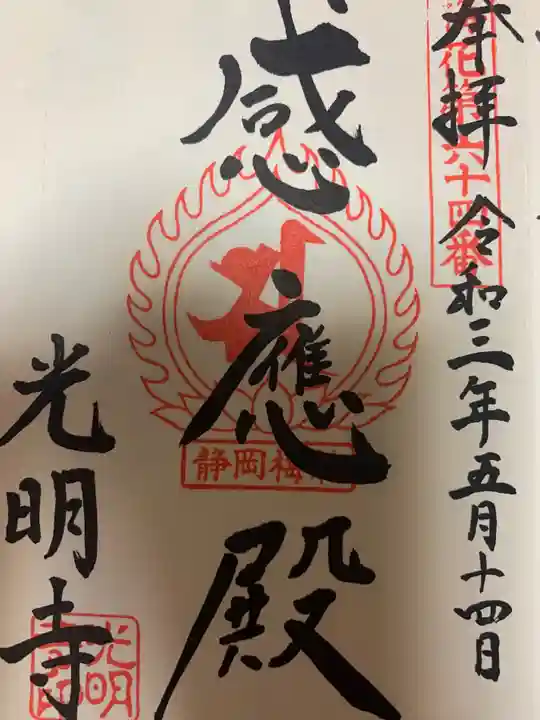 奉拝 令和三年五月十四日
六十四番
感應殿
静岡梅
光明寺
光明